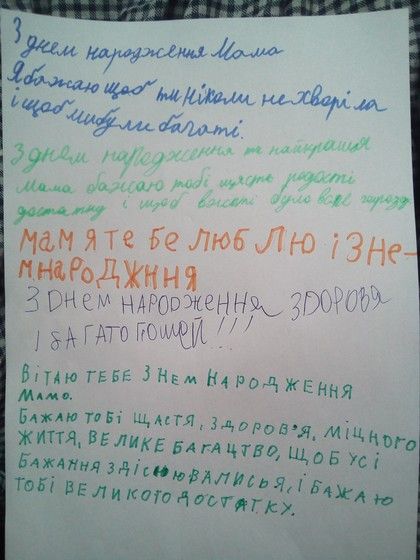 З днем народження Мама
Я бажаю щоб ти ніколи не хворіла
і щоб ми були багаті.
З днем народження ти найкраща
мама бажаю тобі щастя радості
достатку і щоб в житі було все гаразд
МАМ Я ТЕ БЕ ЛЮБ ЛЮ І ЗНЕ-
М НАРОДЖННЯ
З ДНЕМ НАРОДЖЕННЯ ЗДОРОВЯ
І БАГАТО ГОШЕЙ!!!
ВІТАЮ ТЕБЕ З НЕМ НАРОДЖЕННЯ
МАМО.
БАЖАЮ ТОБІ ЩАСТЯ, ЗДОРОВ'Я, МІЦНОГО
ЖИТТЯ, ВЕЛИКЕ БАГАЦТВО, ЩОБ УСІ
БАЖАННЯ ЗДІСНЮВАЛИСЬЯ, І БАЖАЮ
ТОБІ ВЕЛИКОГО ДОСТАТКУ.